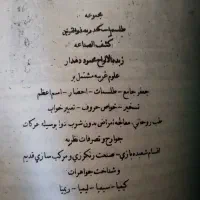 مجموعه
طلسم اسکندر ذوالقرنین
کشف الصناعه
زبدة الالواح محمود دهدار
علوم غریبه مشتمل بر
جفر جامع - طلسمات - احضار - اسم اعظم
تسخیر - خواص حروف - تعبیر خواب
طب روحانی، معالجه امراض بدون شرب دوا بوسیله حرکات
جوارح و تصرفات نظریه
اقسام شعبده بازی - صنعت رنگرزی و مرکب سازی قدیم
و شناخت جواهرات
کیمیا - سیمیا - لیمیا - ریمیا